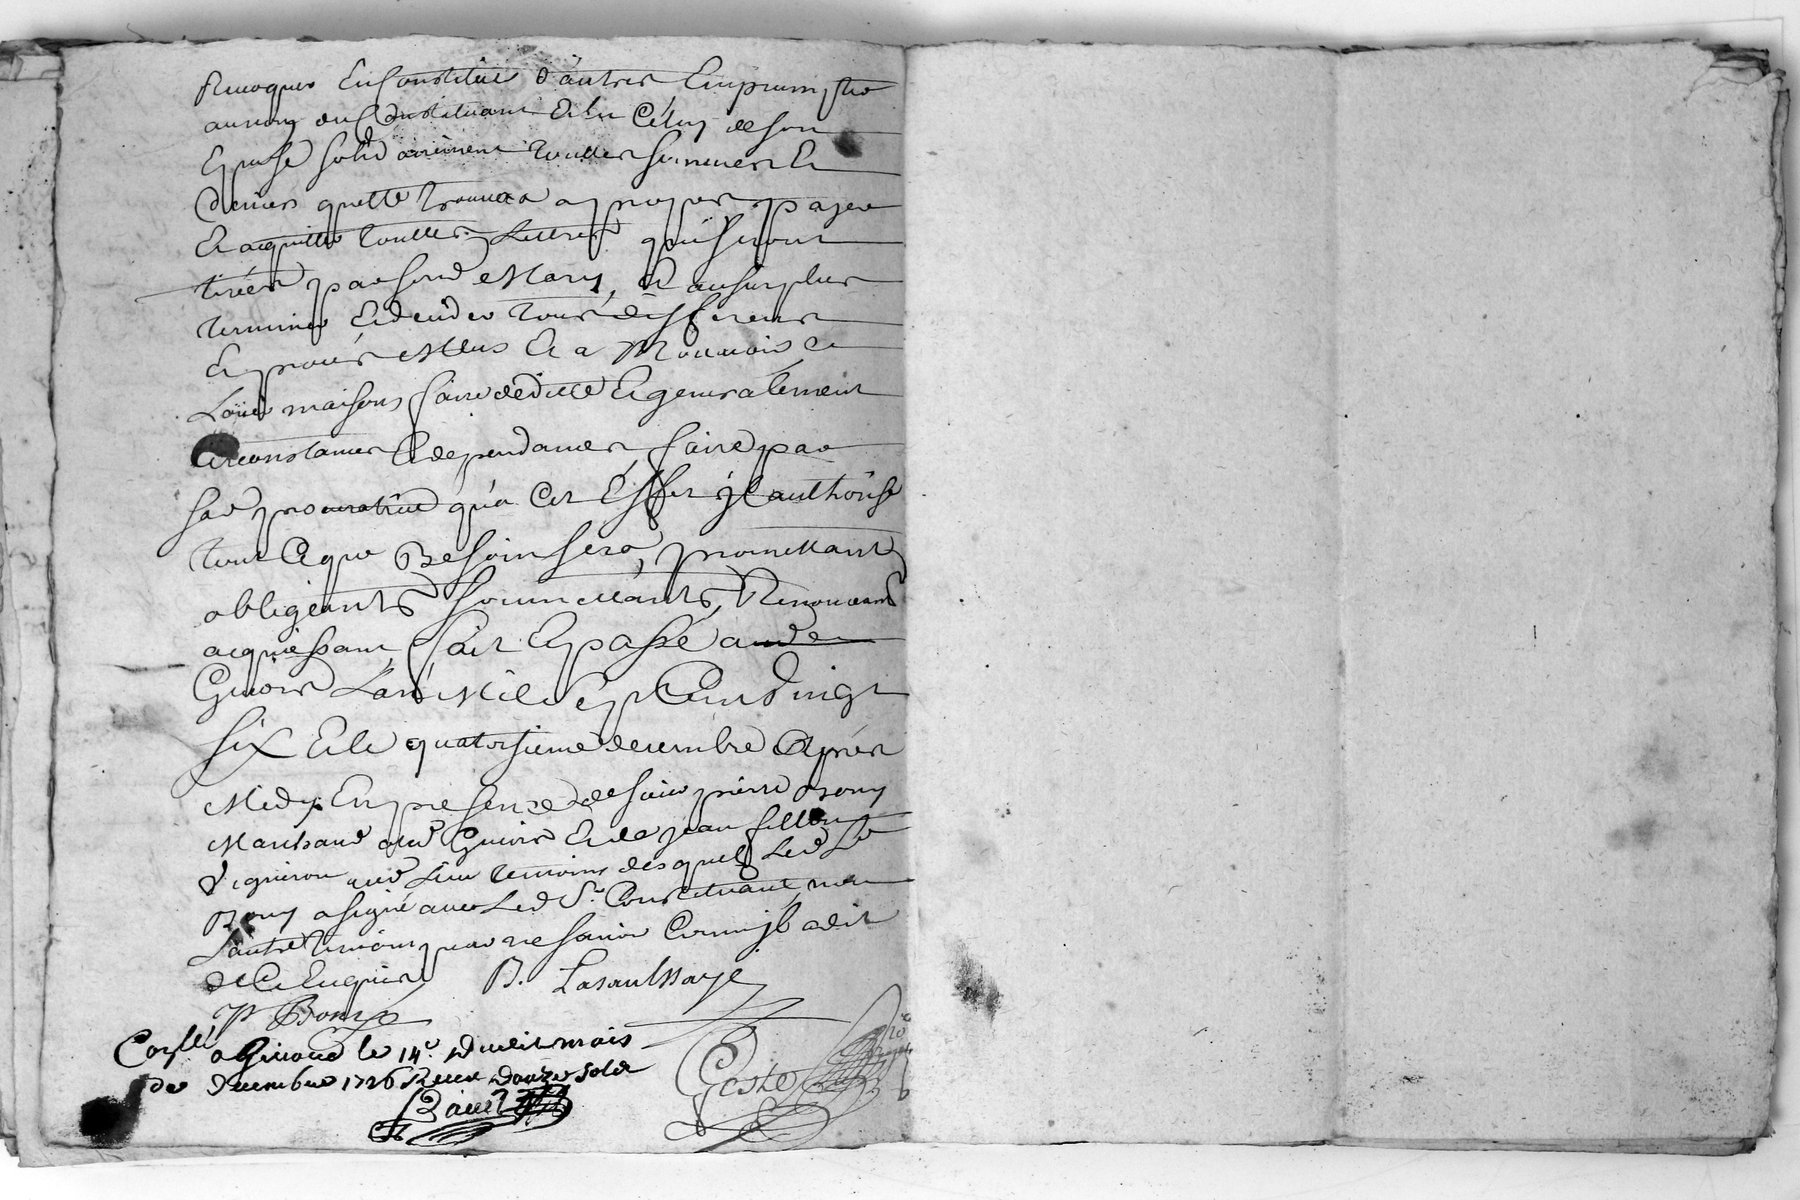 Revoquer En Constituer d'autres Emprunster
au nom du Constituant Et En Celuy de son
Epouse solidairement touttes sommes Et
deniers quelle trouvera a propos payer
Et acquitter touttes Lettres qui seront
tirées par sond Mary, Et au surplus
terminer Et decider tous differens
Et procés Meus Et a Mouvoir,
Loüer maisons faire deditte Et generalement
Circonstances Et dependances faire par
lad procuratrice qu'a Cet Effet jl authorise
tout Et que Besoin sera, promettant
obligeants soummettants, Renonceant
acquiessant, fait Et passé aud
Givors L'an Mil sept Cent vingt
six Et le quatorsieme decembre Apres
Midy En presence de sieur pierre Bony
Marchand aud Givors Et de jean
Vigneron aud Lieu temoins desquels Led Sr
Bony a signé avec Led Sr. Constituant, non
Lautre temoin pour ne sçavoir Comm' jl a dit
de Ce Enquis B. Lasaulsaye
P Bony
Conlle a Givord le 14e. dudit mois
de decembre 1726 Receu douze sols
Geste